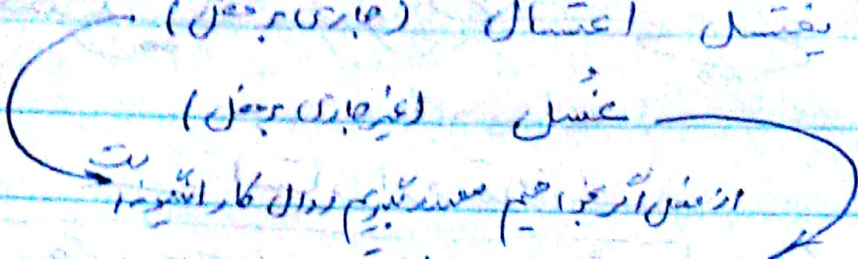 یغتسل اغتسال (جاری بر فعل)
غُسل (غیر جاری بر فعل)
از فعل اگر بخواهیم مصدر بگیریم روال کار اینگونه است